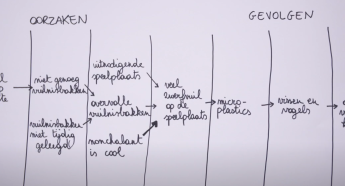 OORZAKEN
GEVOLGEN
niet genoeg
vuilnisbakken
vuilnisbakken
niet tijdig
geleegd
uitnodigende
speelplaats
overvolle
vuilnisbakken
nonchalant
is cool
veel
zwerfvuil
op de
speelplaats
micro-
plastics
vissen en
vogels